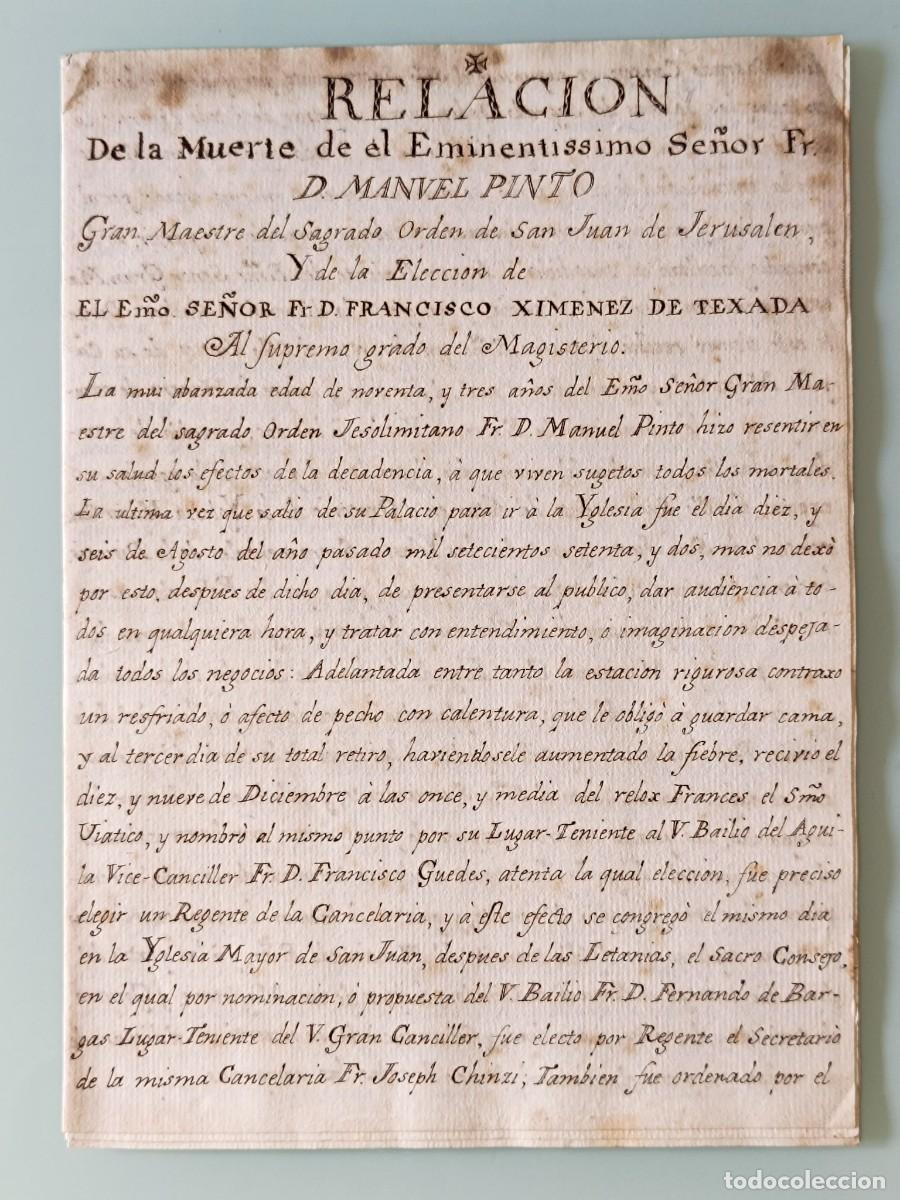 ✠
RELACION
De la Muerte de el Eminentissimo Señor Fr.
D. MANVEL PINTO
Gran Maestre del Sagrado Orden de San Juan de Jerusalen,
Y de la Eleccion de
EL Emõ. SEÑOR Fr. D. FRANCISCO XIMENEZ DE TEXADA
Al supremo grado del Magisterio.
La mui abanzada edad de noventa, y tres años del Emõ Señor Gran Ma-
estre del sagrado Orden Jesolimitano Fr. D. Manuel Pinto hizo resentir en
su salud los efectos de la decadencia, à que viven sugetos todos los mortales.
La ultima vez que salio de su Palacio para ir à la Yglesia fue el dia diez, y
seis de Agosto del año pasado mil setecientos setenta, y dos, mas no dexò
por esto, despues de dicho dia, de presentarse al publico, dar audiencia à to-
dos en qualquiera hora, y tratar con entendimiento, ò imaginacion despeja-
da todos los negocios: Adelantada entre tanto la estacion rigurosa contraxo
un resfriado, ò afecto de pecho con calentura, que le obligò à guardar cama,
y al tercer dia de su total retiro, haviendosele aumentado la fiebre, recivio el
diez, y nueve de Diciembre à las once, y media del relox Frances el Smõ
Viatico, y nombrò al mismo punto por su Lugar-Teniente al V. Bailio del Agui-
la Vice-Canciller Fr. D. Francisco Guedes, atenta la qual eleccion, fue preciso
elegir un Regente de la Cancelaria, y à este efecto se congregò el mismo dia
en la Yglesia Mayor de San Juan, despues de las Letanias, el Sacro Consejo,
en el qual por nominacion, ò propuesta del V. Bailio Fr. D. Fernando de Bar-
gas Lugar-Teniente del V. Gran Canciller, fue electo por Regente el Secretario
de la misma Cancelaria Fr. Joseph Chinzi; Tambien fue ordenado por el
todocoleccion